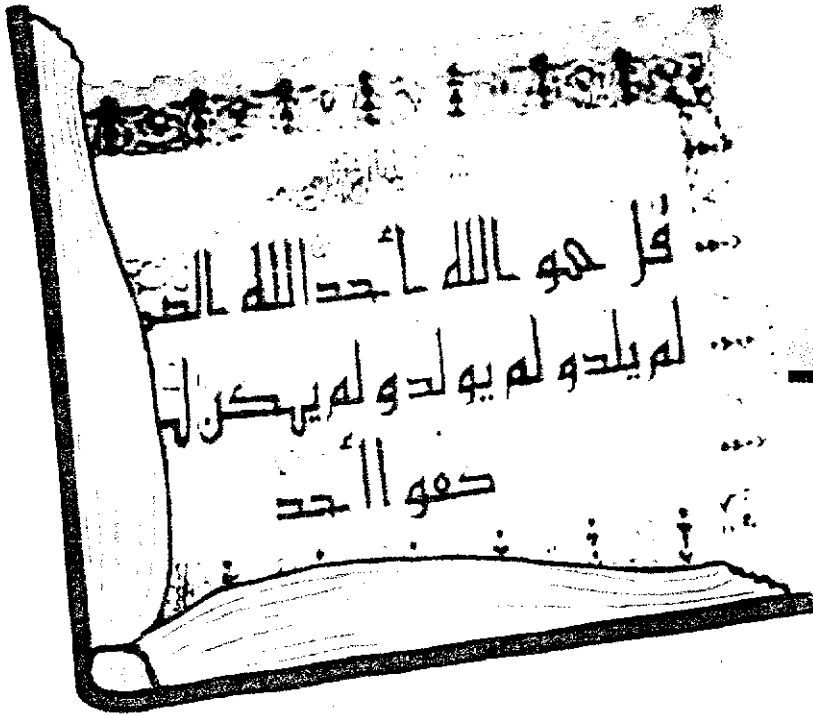 قل هو الله أحد الله
لم يلد و لم يولد و لم يكن
كفوا أحد